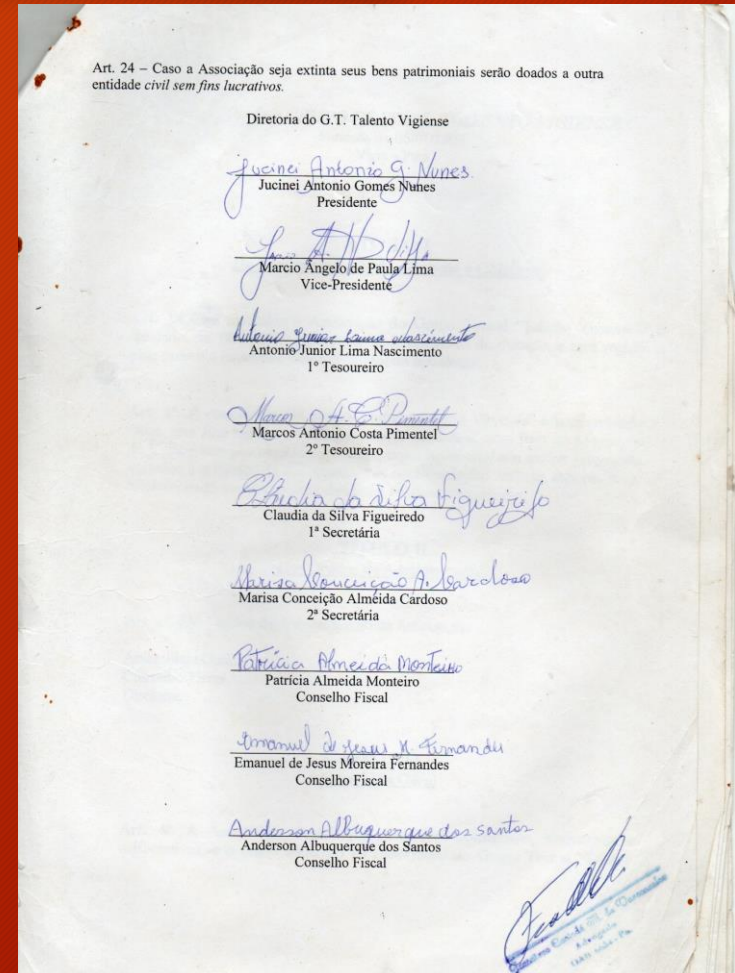 Art. 24 – Caso a Associação seja extinta seus bens patrimoniais serão doados a outra
entidade civil sem fins lucrativos.
Diretoria do G.T. Talento Vigiense
Jucinei Antonio G. Nunes
Jucinei Antonio Gomes Nunes
Presidente
Marcio Ângelo de Paula Lima
Vice-Presidente
Antonio Junior Lima Nascimento
Antonio Junior Lima Nascimento
1º Tesoureiro
Marcos A. C. Pimentel
Marcos Antonio Costa Pimentel
2º Tesoureiro
Claudia da Silva Figueiredo
Claudia da Silva Figueiredo
1ª Secretária
Marisa Conceição A. Cardoso
Marisa Conceição Almeida Cardoso
2ª Secretária
Patrícia Almeida Monteiro
Patrícia Almeida Monteiro
Conselho Fiscal
Emanuel de Jesus M. Fernandes
Emanuel de Jesus Moreira Fernandes
Conselho Fiscal
Anderson Albuquerque dos Santos
Anderson Albuquerque dos Santos
Conselho Fiscal